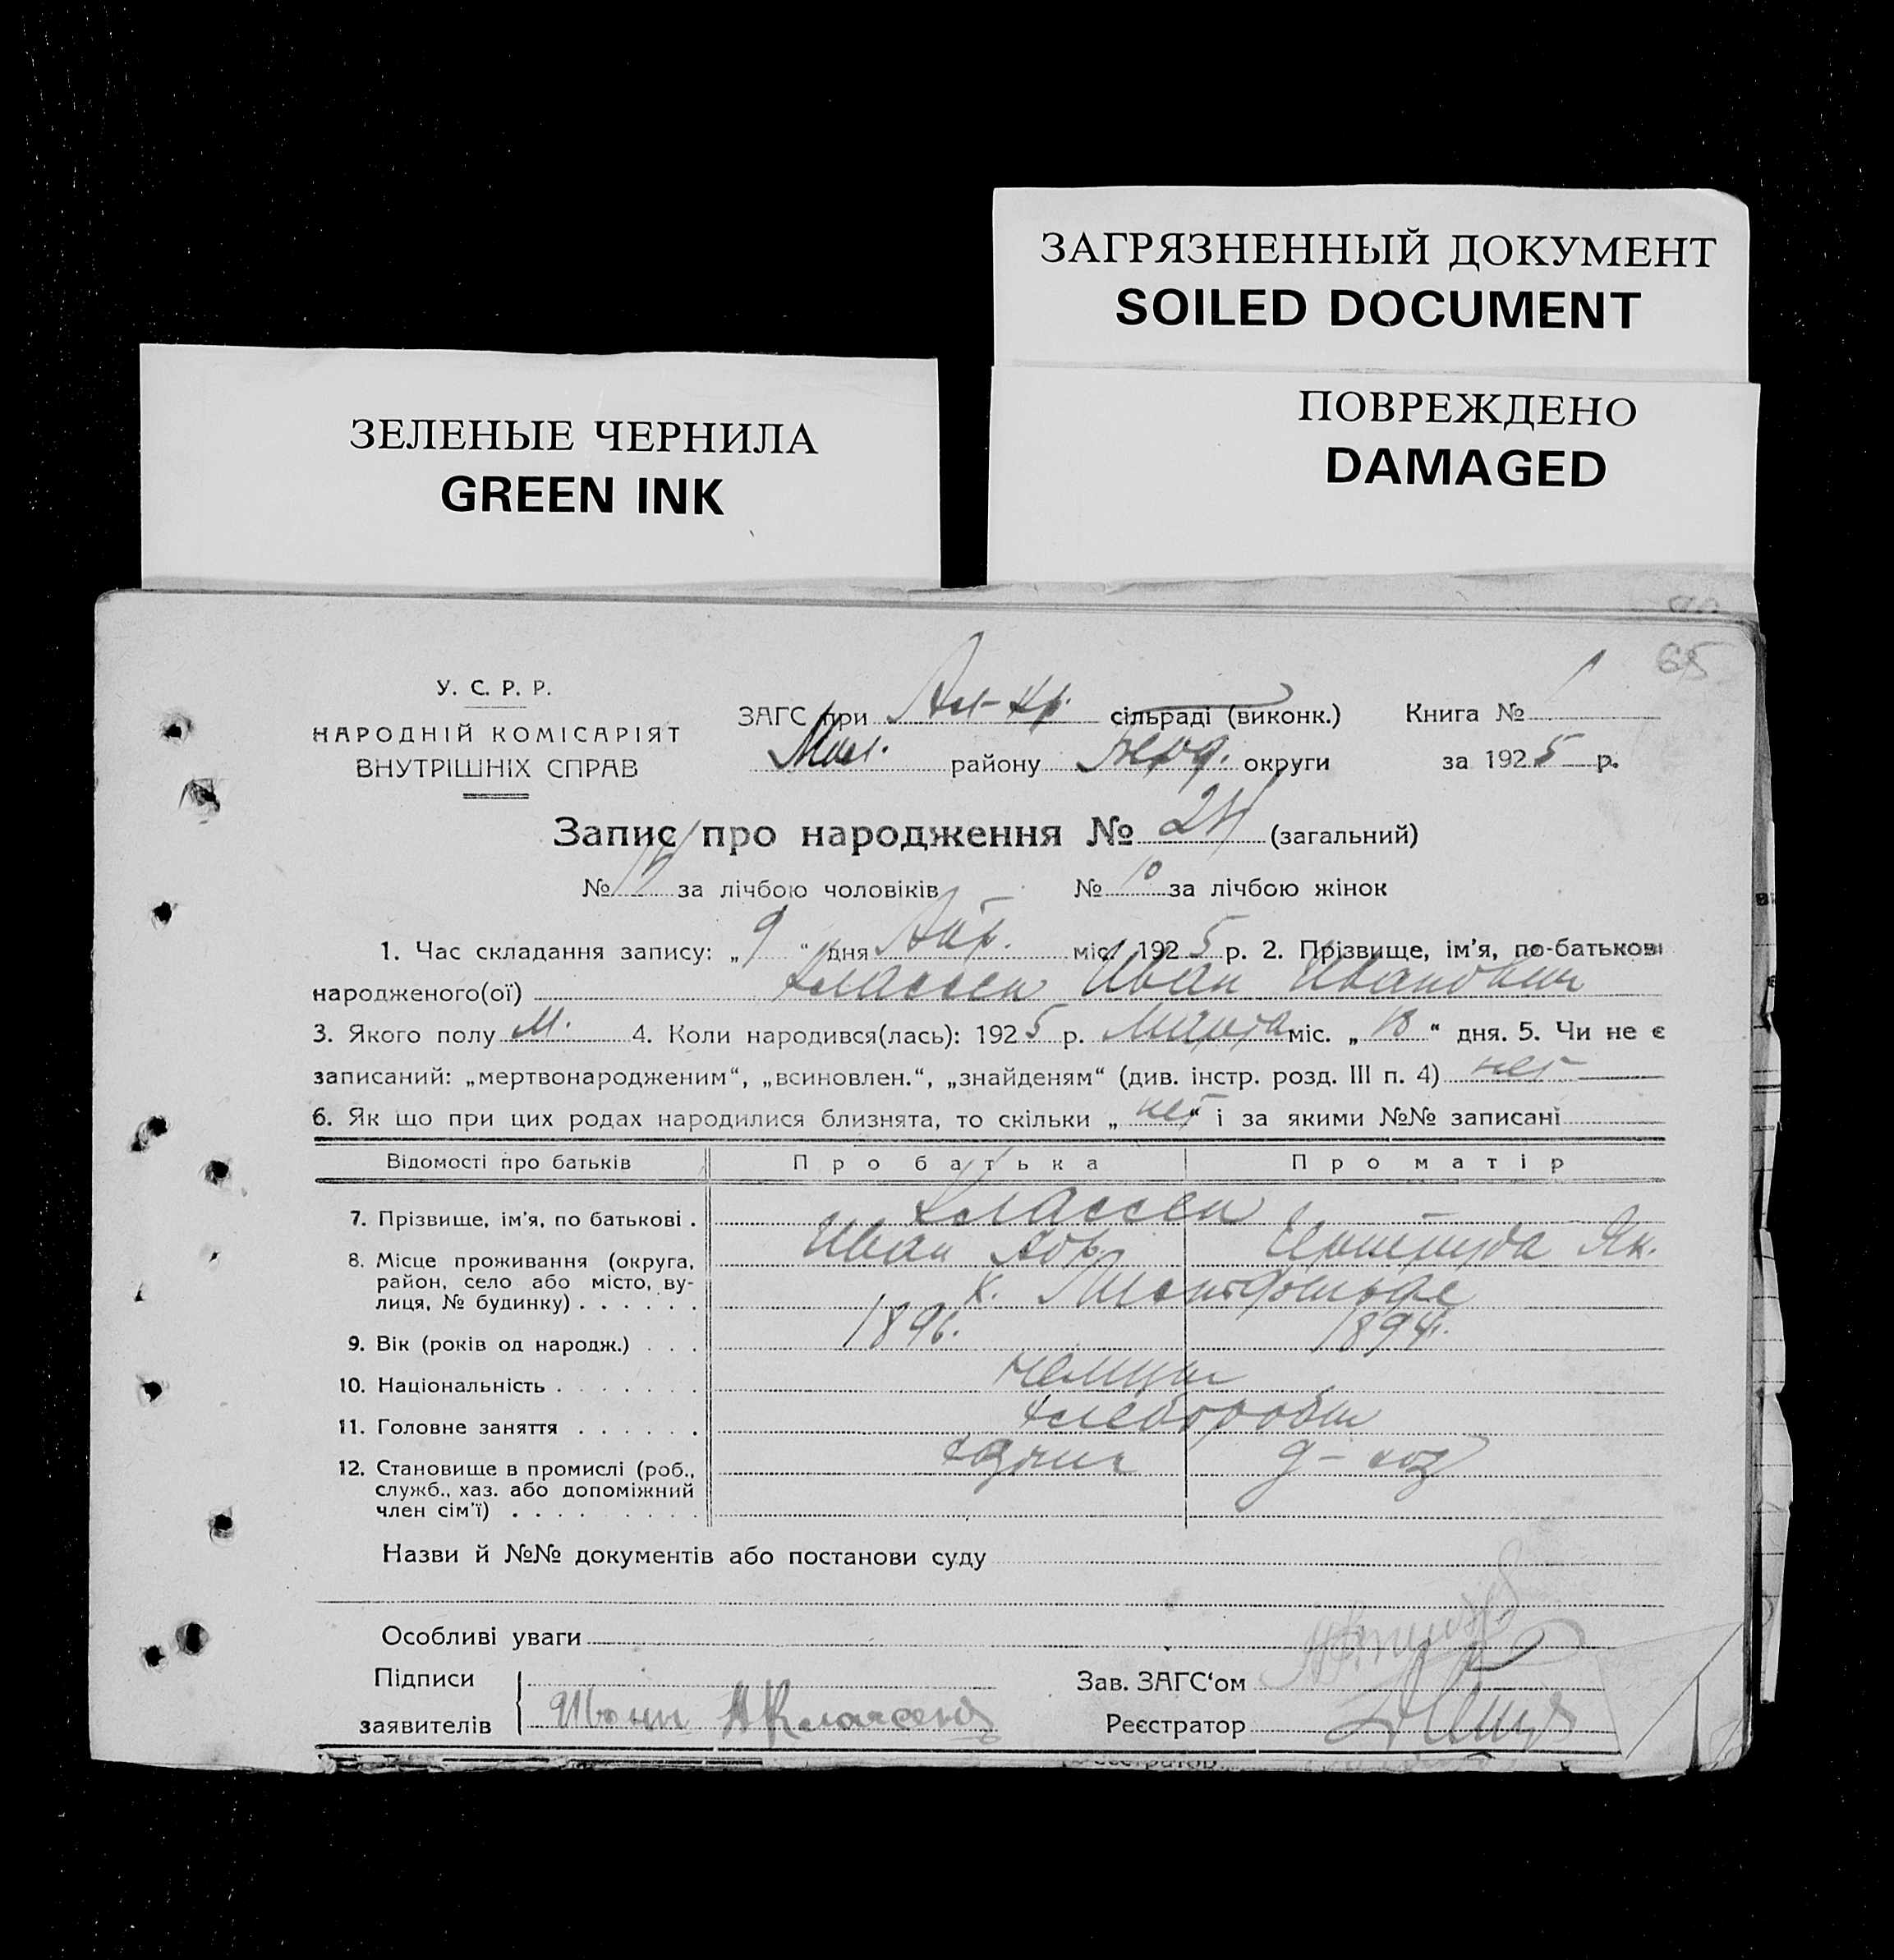 ЗАГРЯЗНЕННЫЙ ДОКУМЕНТ
SOILED DOCUMENT
ПОВРЕЖДЕНО
DAMAGED
ЗЕЛЕНЫЕ ЧЕРНИЛА
GREEN INK
65
У. С. Р. Р.
НАРОДНІЙ КОМІСАРІЯТ
ВНУТРІШНІХ СПРАВ
ЗАГС при Ал-Кр. сільраді (виконк.) Книга № 1
Мол. району Берд. округи за 1925 р.
Запис про народження № 24 (загальний)
№ за лічбою чоловіків № 10 за лічбою жінок
1. Час складання запису: „9“ дня Апр. міс. 1925 р. 2. Прізвище, ім'я, по-батькові
народженого(ої) Классен Иван Иванович
3. Якого полу М. 4. Коли народився(лась): 1925 р. Марта міс. „18“ дня. 5. Чи не є
записаний: „мертвонародженим“, „всиновлен.“, „знайденям“ (див. інстр. розд. III п. 4) нет
6. Як що при цих родах народилися близнята, то скільки „нет“ і за якими №№ записані
Відомості про батьків Про батька Про матір
7. Прізвище, ім'я, по батькові . Классен
Иван Як.
8. Місце проживання (округа,
район, село або місто, ву-
лиця, № будинку) . . . . . .
х.
9. Вік (років од народж.) . . . 1896. 1894.
10. Національність . . . . . . . немцы
11. Головне заняття . . . . . . хлеборобы
12. Становище в промислі (роб.,
служб., хаз. або допоміжний
член сім'ї) . . . . . . . . .
хозяин д-хоз
Назви й №№ документів або постанови суду
Особливі уваги
Підписи
заявителів
Зав. ЗАГС‘ом
Реєстратор